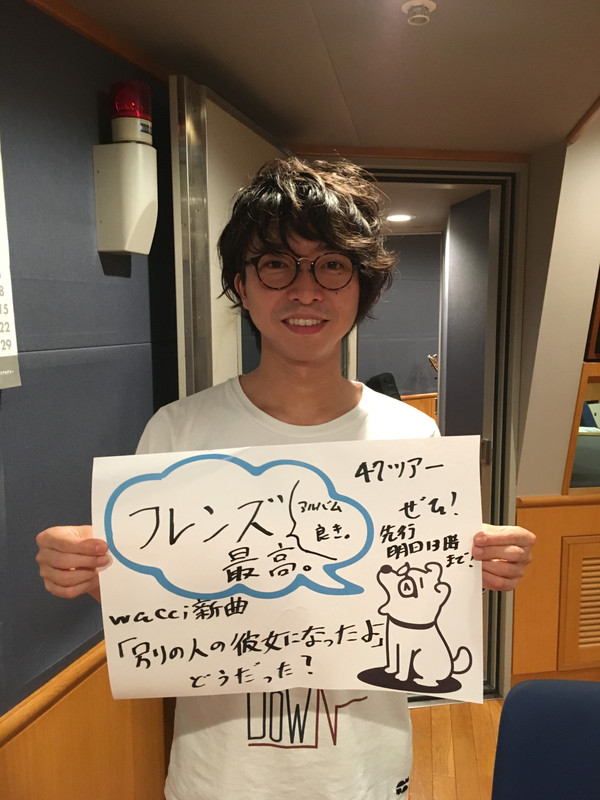 8
15
22
29
47ツアー
ぜひ!
先行
明日18時
まで!
フレンズ
最高。
アルバム
良き。
wacci新曲
「別の人の彼女になったよ」
どうだった?
DOWN